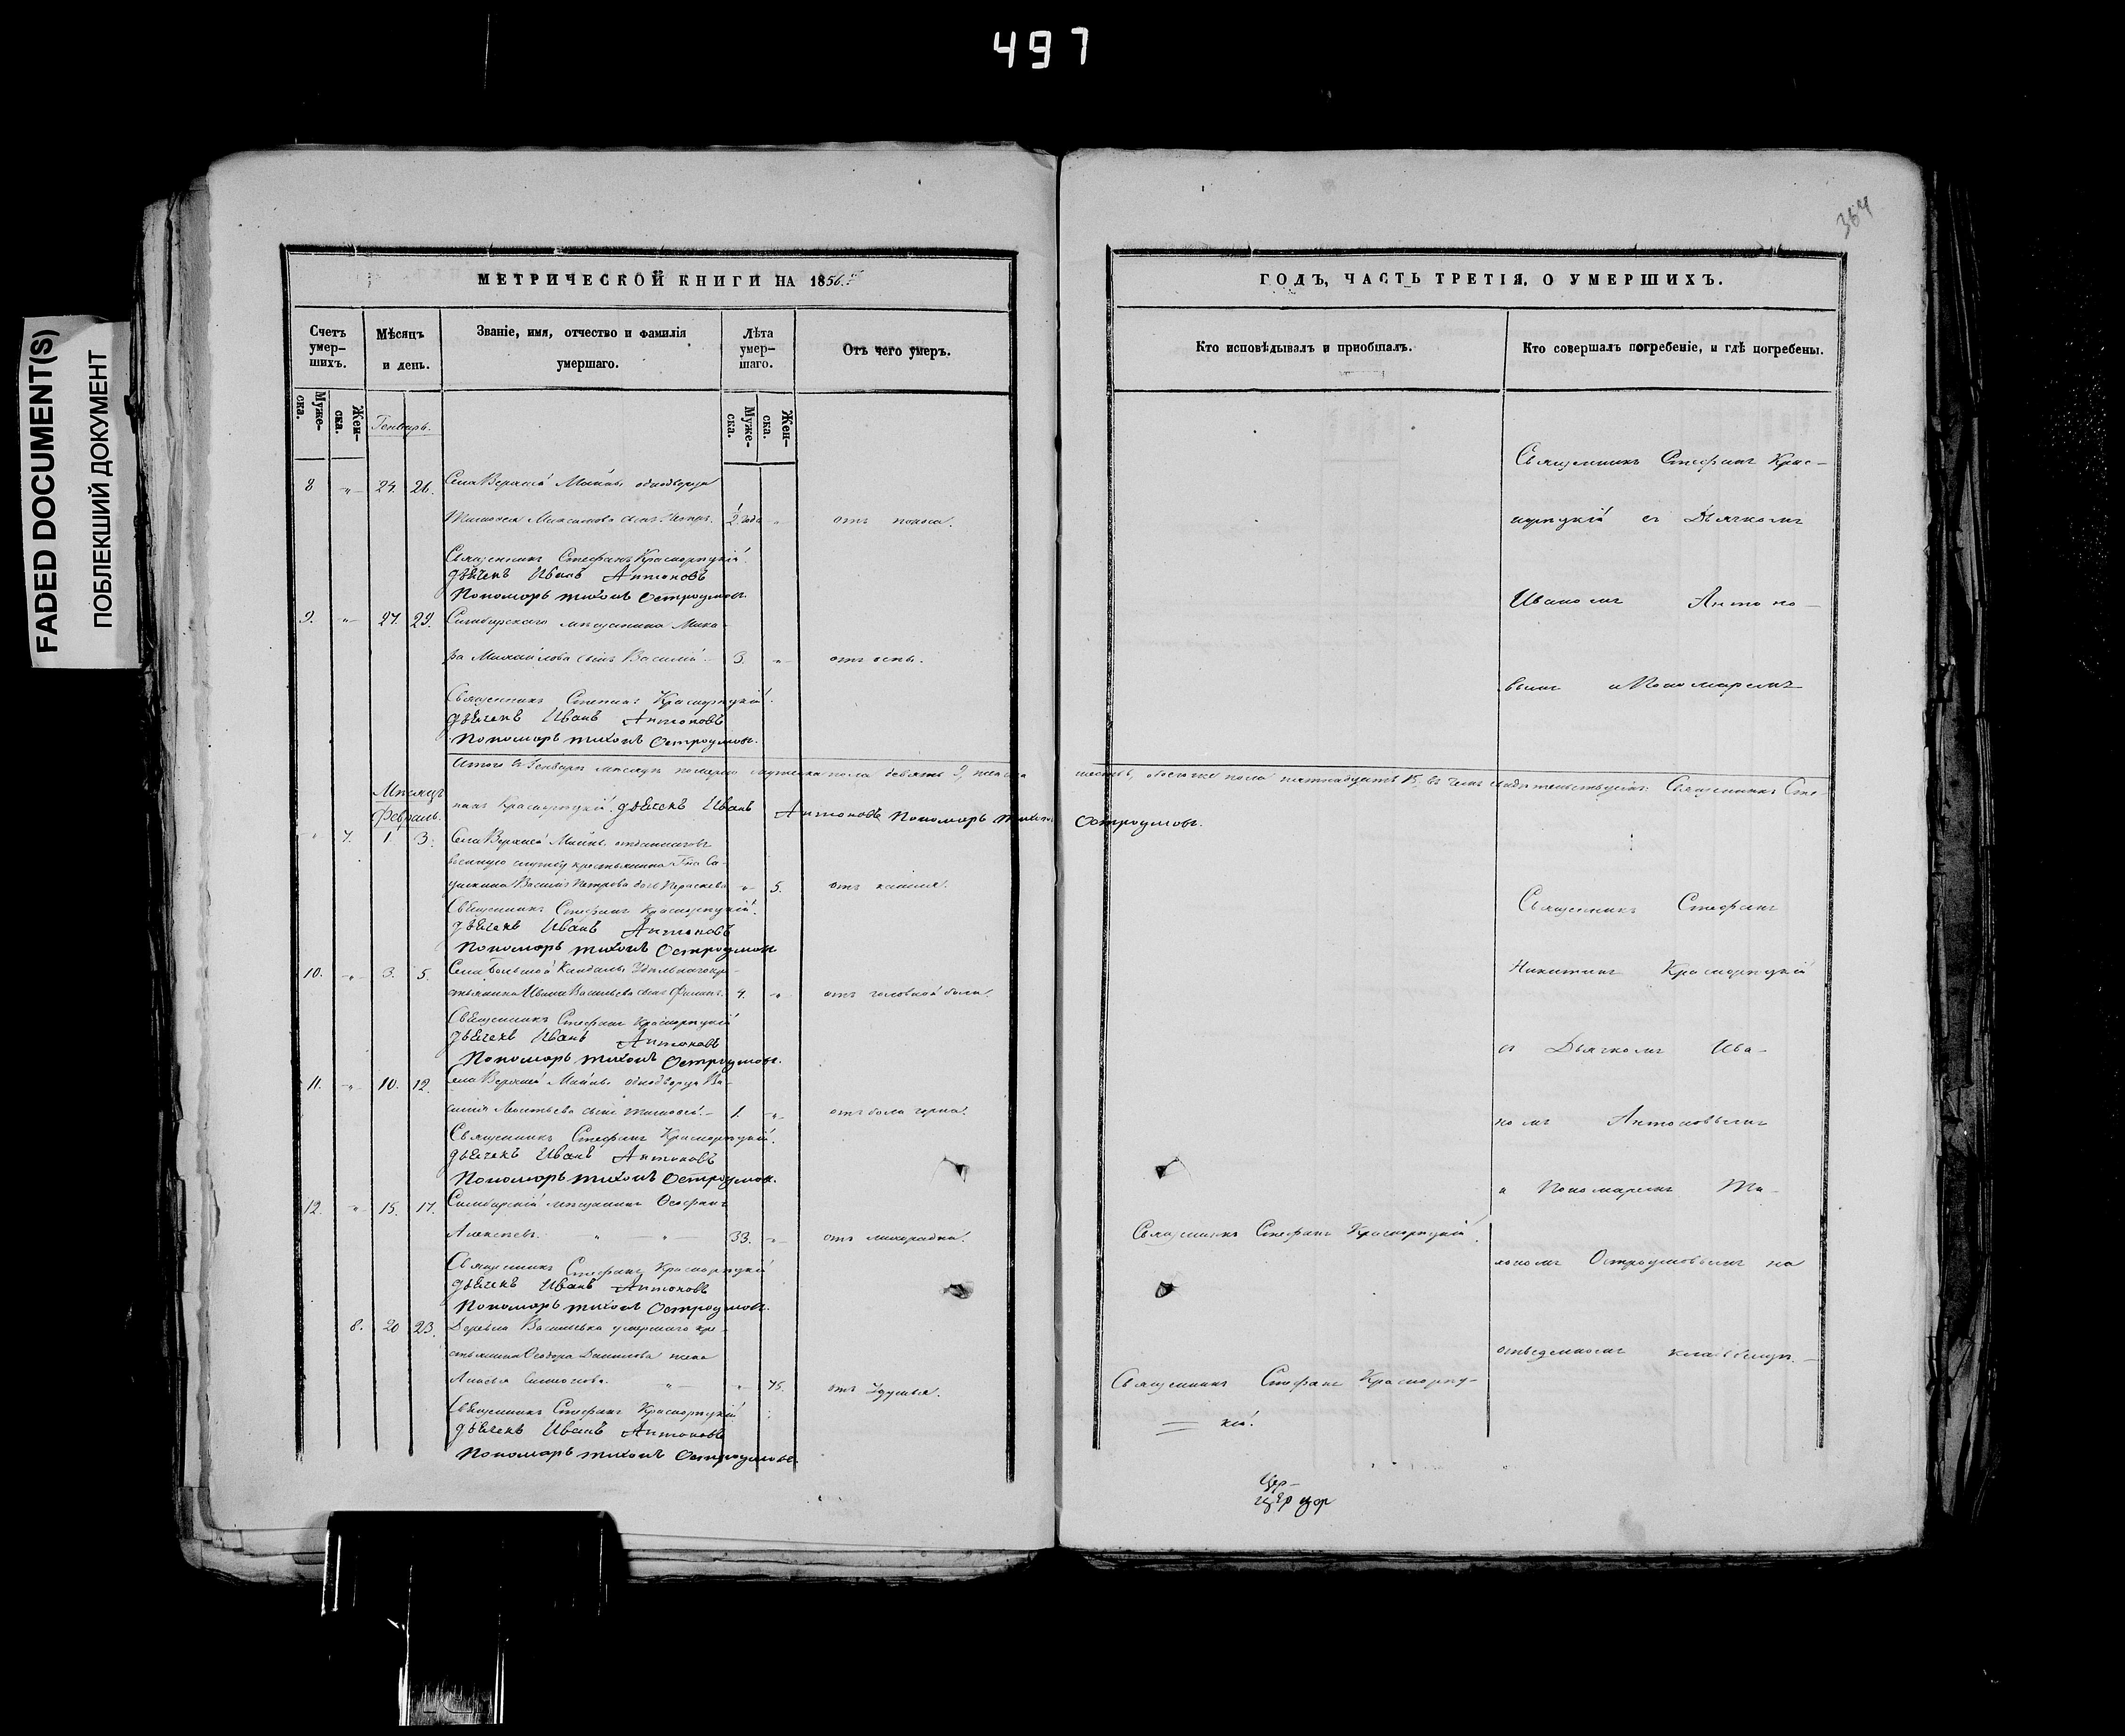 497
364
FADED DOCUMENT(S)
ПОБЛЕКШИЙ ДОКУМЕНТ
МЕТРИЧЕСКОЙ КНИГИ НА 1856.
Счетъ умер-шихъ.
Мѣсяцъ и день.
Званіе, имя, отчество и фамилія умершаго.
Лѣта умер-шаго.
Отъ чего умеръ.
Муже-ска.
Жен-ска.
Генварь.
Муже-ска.
Жен-ска.
8 „ 24. 26. Села Верхней Майны однодворца
Тимофея Максимова сынъ Петръ. ½ года „ отъ поноса.
Священникъ Стефанъ Красноряцкій.
дьячекъ Иванъ Антоновъ
Пономарь Тихонъ Остроумовъ.
9. „ 27. 29. Симбирскаго мещанина
Михайлова сынъ Василій. 3. „ отъ оспы.
Священникъ Красноряцкій.
дьячекъ Иванъ Антоновъ
Пономарь Тихонъ Остроумовъ.
Итого въ Генварѣ месяцѣ померло мужеска пола девять 9, женска
Месяцъ
Февраль.
Красноряцкій. дьячекъ Иванъ Антоновъ Пономарь Тихонъ
„ 7. 1. 3. Села Верхней Майны
военную службу крестьянина
Василія Петрова дочь Параскева „ 5. отъ кашля.
Священникъ Стефанъ Красноряцкій.
дьячекъ Иванъ Антоновъ
Пономарь Тихонъ Остроумовъ
10. „ 3. 5. Села Большой Кандалы Удѣльнаго кре-
стьянина Ивана Васильева сынъ 4. „ отъ головной боли.
Священникъ Стефанъ Красноряцкій
дьячекъ Иванъ Антоновъ
Пономарь Тихонъ Остроумовъ.
11. „ 10. 12. Села Верхней Майны однодворца Ва-
силія Леонтьева сынъ Тимофей. 1. „ отъ боли горла.
Священникъ Стефанъ Красноряцкій.
дьячекъ Иванъ Антоновъ
Пономарь Тихонъ Остроумовъ.
12. „ 15. 17. Симбирскій мещанинъ Ѳеофанъ
Алексеевъ. „ „ 33. „ отъ лихорадки.
Священникъ Стефанъ Красноряцкій
дьячекъ Иванъ Антоновъ
Пономарь Тихонъ Остроумовъ.
8. 20 23. Деревни Васильевки умершаго кре-
стьянина Ѳеодора Данилова жена
„ „ 75. отъ удушья.
Священникъ Стефанъ Красноряцкій
дьячекъ Иванъ Антоновъ
Пономарь Тихонъ Остроумовъ.
ГОДЪ, ЧАСТЬ ТРЕТІЯ, О УМЕРШИХЪ.
Кто исповѣдывалъ и пріобщалъ.
Кто совершалъ погребеніе, и гдѣ погребены.
Священникъ Стефанъ Крас-
норяцкій съ Дьячкомъ
Иваномъ Антоно-
вымъ и Пономаремъ
шесть 6, обоего же пола пятнадцать 15, въ чемъ свидетельствуемъ: Священникъ Сте-
Остроумовъ.
Священникъ Стефанъ
Никитинъ Красноряцкій
съ Дьячкомъ Ива-
номъ Антоновымъ
и Пономаремъ Ти-
хономъ Остроумовымъ на
отведенномъ кладбищѣ.
Священникъ Стефанъ Красноряцкій.
Священникъ Стефанъ Красноряц-
кій.